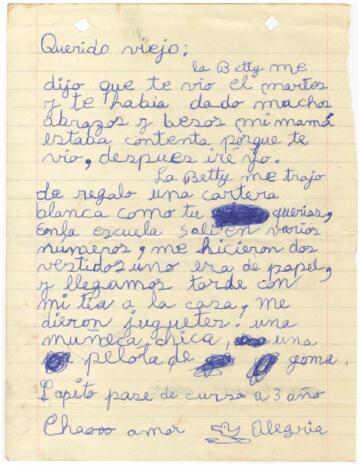 Querido viejo:
la Betty me
dijo que te vio el martes
y te había dado muchos
abrazos y besos, mi mamá
estaba contenta porque te
vio, despues iré yo.
La Betty me trajo
de regalo una cartera
blanca como tu querias,
En la escuela sali en varios
números, me hicieron dos
vestidos uno era de papel,
y llegamos tarde con
mi tia a la casa, me
dieron juguetes: una
muñeca chica, una
pelota de goma.
Papito pase de curso a 3 año
Chaooo amor Alegria